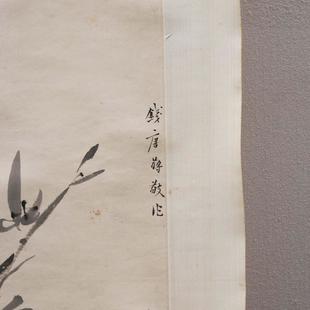 錢唐蔣敬作